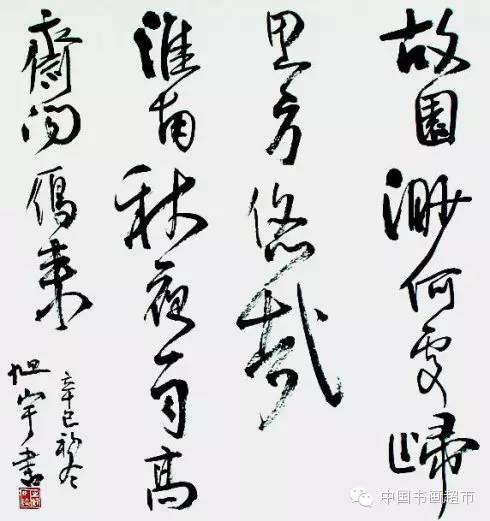 故園渺何處歸
思方悠哉
淮南秋夜雨高
齋聞鴈来
辛巳初冬
旭宇書
中国书画超市